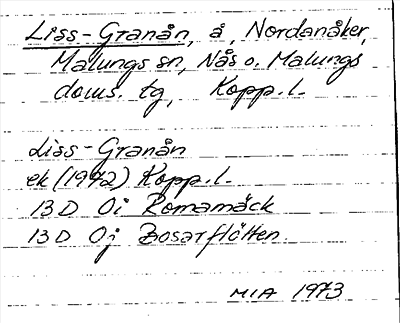 Liss-Granån, å, Nordanåker,
Malungs sn, Nås o. Malungs
doms. tg, Kopp. l.
Liss-Granån
ek (1972) Kopp. l.
13 D 0i Romamäck
13 D 0j Bosarflötten.
MIA 1973